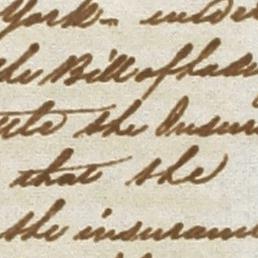 York - under
the Bill of ladi
the Insur
that the
the insuranc